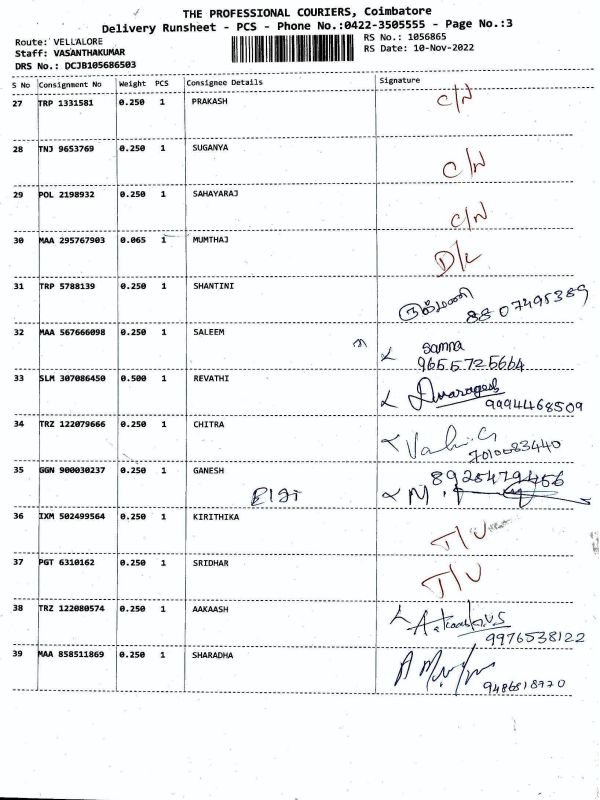 THE PROFESSIONAL COURIERS, Coimbatore
Delivery Runsheet - PCS - Phone No.:0422-3505555 - Page No.:3
Route: VELLALORE RS No.: 1056865
Staff: VASANTHAKUMAR RS Date: 10-Nov-2022
DRS No.: DCJB105686503
S No Consignment No Weight PCS Consignee Details Signature
27 TRP 1331581 0.250 1 PRAKASH C/N
28 TNJ 9653769 0.250 1 SUGANYA C/N
29 POL 2198932 0.250 1 SAHAYARAJ C/N
30 MAA 295767903 0.065 1 MUMTHAJ D/L
31 TRP 5788139 0.250 1 SHANTINI
8807495389
32 MAA 567666098 0.250 1 SALEEM
9655725664
33 SLM 307086450 0.500 1 REVATHI
9994468509
34 TRZ 122079666 0.250 1 CHITRA
7010083440
35 GGN 900030237 0.250 1 GANESH
M.
36 IXM 502499564 0.250 1 KIRITHIKA T/U
37 PGT 6310162 0.250 1 SRIDHAR T/U
38 TRZ 122080574 0.250 1 AAKAASH
9976538122
39 MAA 858511869 0.250 1 SHARADHA